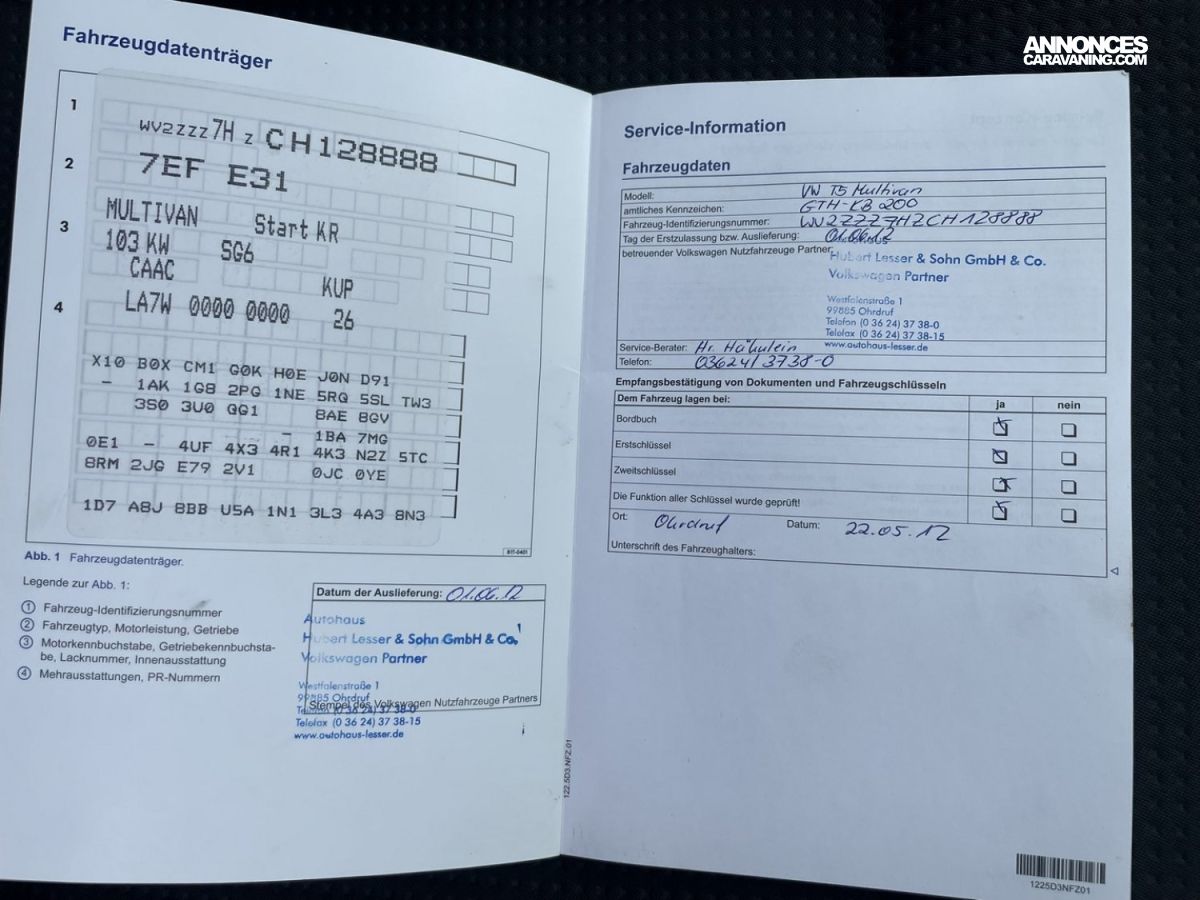 ANNONCES
CARAVANING.COM
Fahrzeugdatenträger
1
WV2ZZZ7H Z CH128888
2
7EF E31
3
MULTIVAN Start KR
103 KW SG6
CAAC KUP
4
LA7W 0000 0000 26
X10 B0X CM1 G0K H0E J0N D91
- 1AK 1G8 2PG 1NE 5RQ 5SL TW3
3S0 3U0 QG1 8AE 8GV
- 1BA 7MG
0E1 - 4UF 4X3 4R1 4K3 N2Z 5TC
8RM 2JG E79 2V1 0JC 0YE
1D7 A8J 8BB U5A 1N1 3L3 4A3 8N3
Abb. 1 Fahrzeugdatenträger.
Legende zur Abb. 1:
1 Fahrzeug-Identifizierungsnummer
2 Fahrzeugtyp, Motorleistung, Getriebe
3 Motorkennbuchstabe, Getriebekennbuchsta-
be, Lacknummer, Innenausstattung
4 Mehrausstattungen, PR-Nummern
Datum der Auslieferung: 01.06.12
Autohaus
Hubert Lesser & Sohn GmbH & Co.
Volkswagen Partner
Westfalenstraße 1
99885 Ohrdruf
Stempel des Volkswagen Nutzfahrzeuge Partners
Telefon (0 36 24) 37 38-0
Telefax (0 36 24) 37 38-15
www.autohaus-lesser.de
122.5D3.NFZ.01
Service-Information
Fahrzeugdaten
Modell: VW T5 Multivan
amtliches Kennzeichen: GTH-KB 200
Fahrzeug-Identifizierungsnummer: WV2ZZZ7HZCH128888
Tag der Erstzulassung bzw. Auslieferung: 01.06.12
betreuender Volkswagen Nutzfahrzeuge Partner:
Hubert Lesser & Sohn GmbH & Co.
Volkswagen Partner
Westfalenstraße 1
99885 Ohrdruf
Telefon (0 36 24) 37 38-0
Telefax (0 36 24) 37 38-15
www.autohaus-lesser.de
Service-Berater: Hr. Hähnlein
Telefon: 03624/3738-0
Empfangsbestätigung von Dokumenten und Fahrzeugschlüsseln
Dem Fahrzeug lagen bei: ja nein
Bordbuch
Erstschlüssel
Zweitschlüssel
Die Funktion aller Schlüssel wurde geprüft!
Ort: Ohrdruf Datum: 22.05.12
Unterschrift des Fahrzeughalters:
1225D3NFZ01